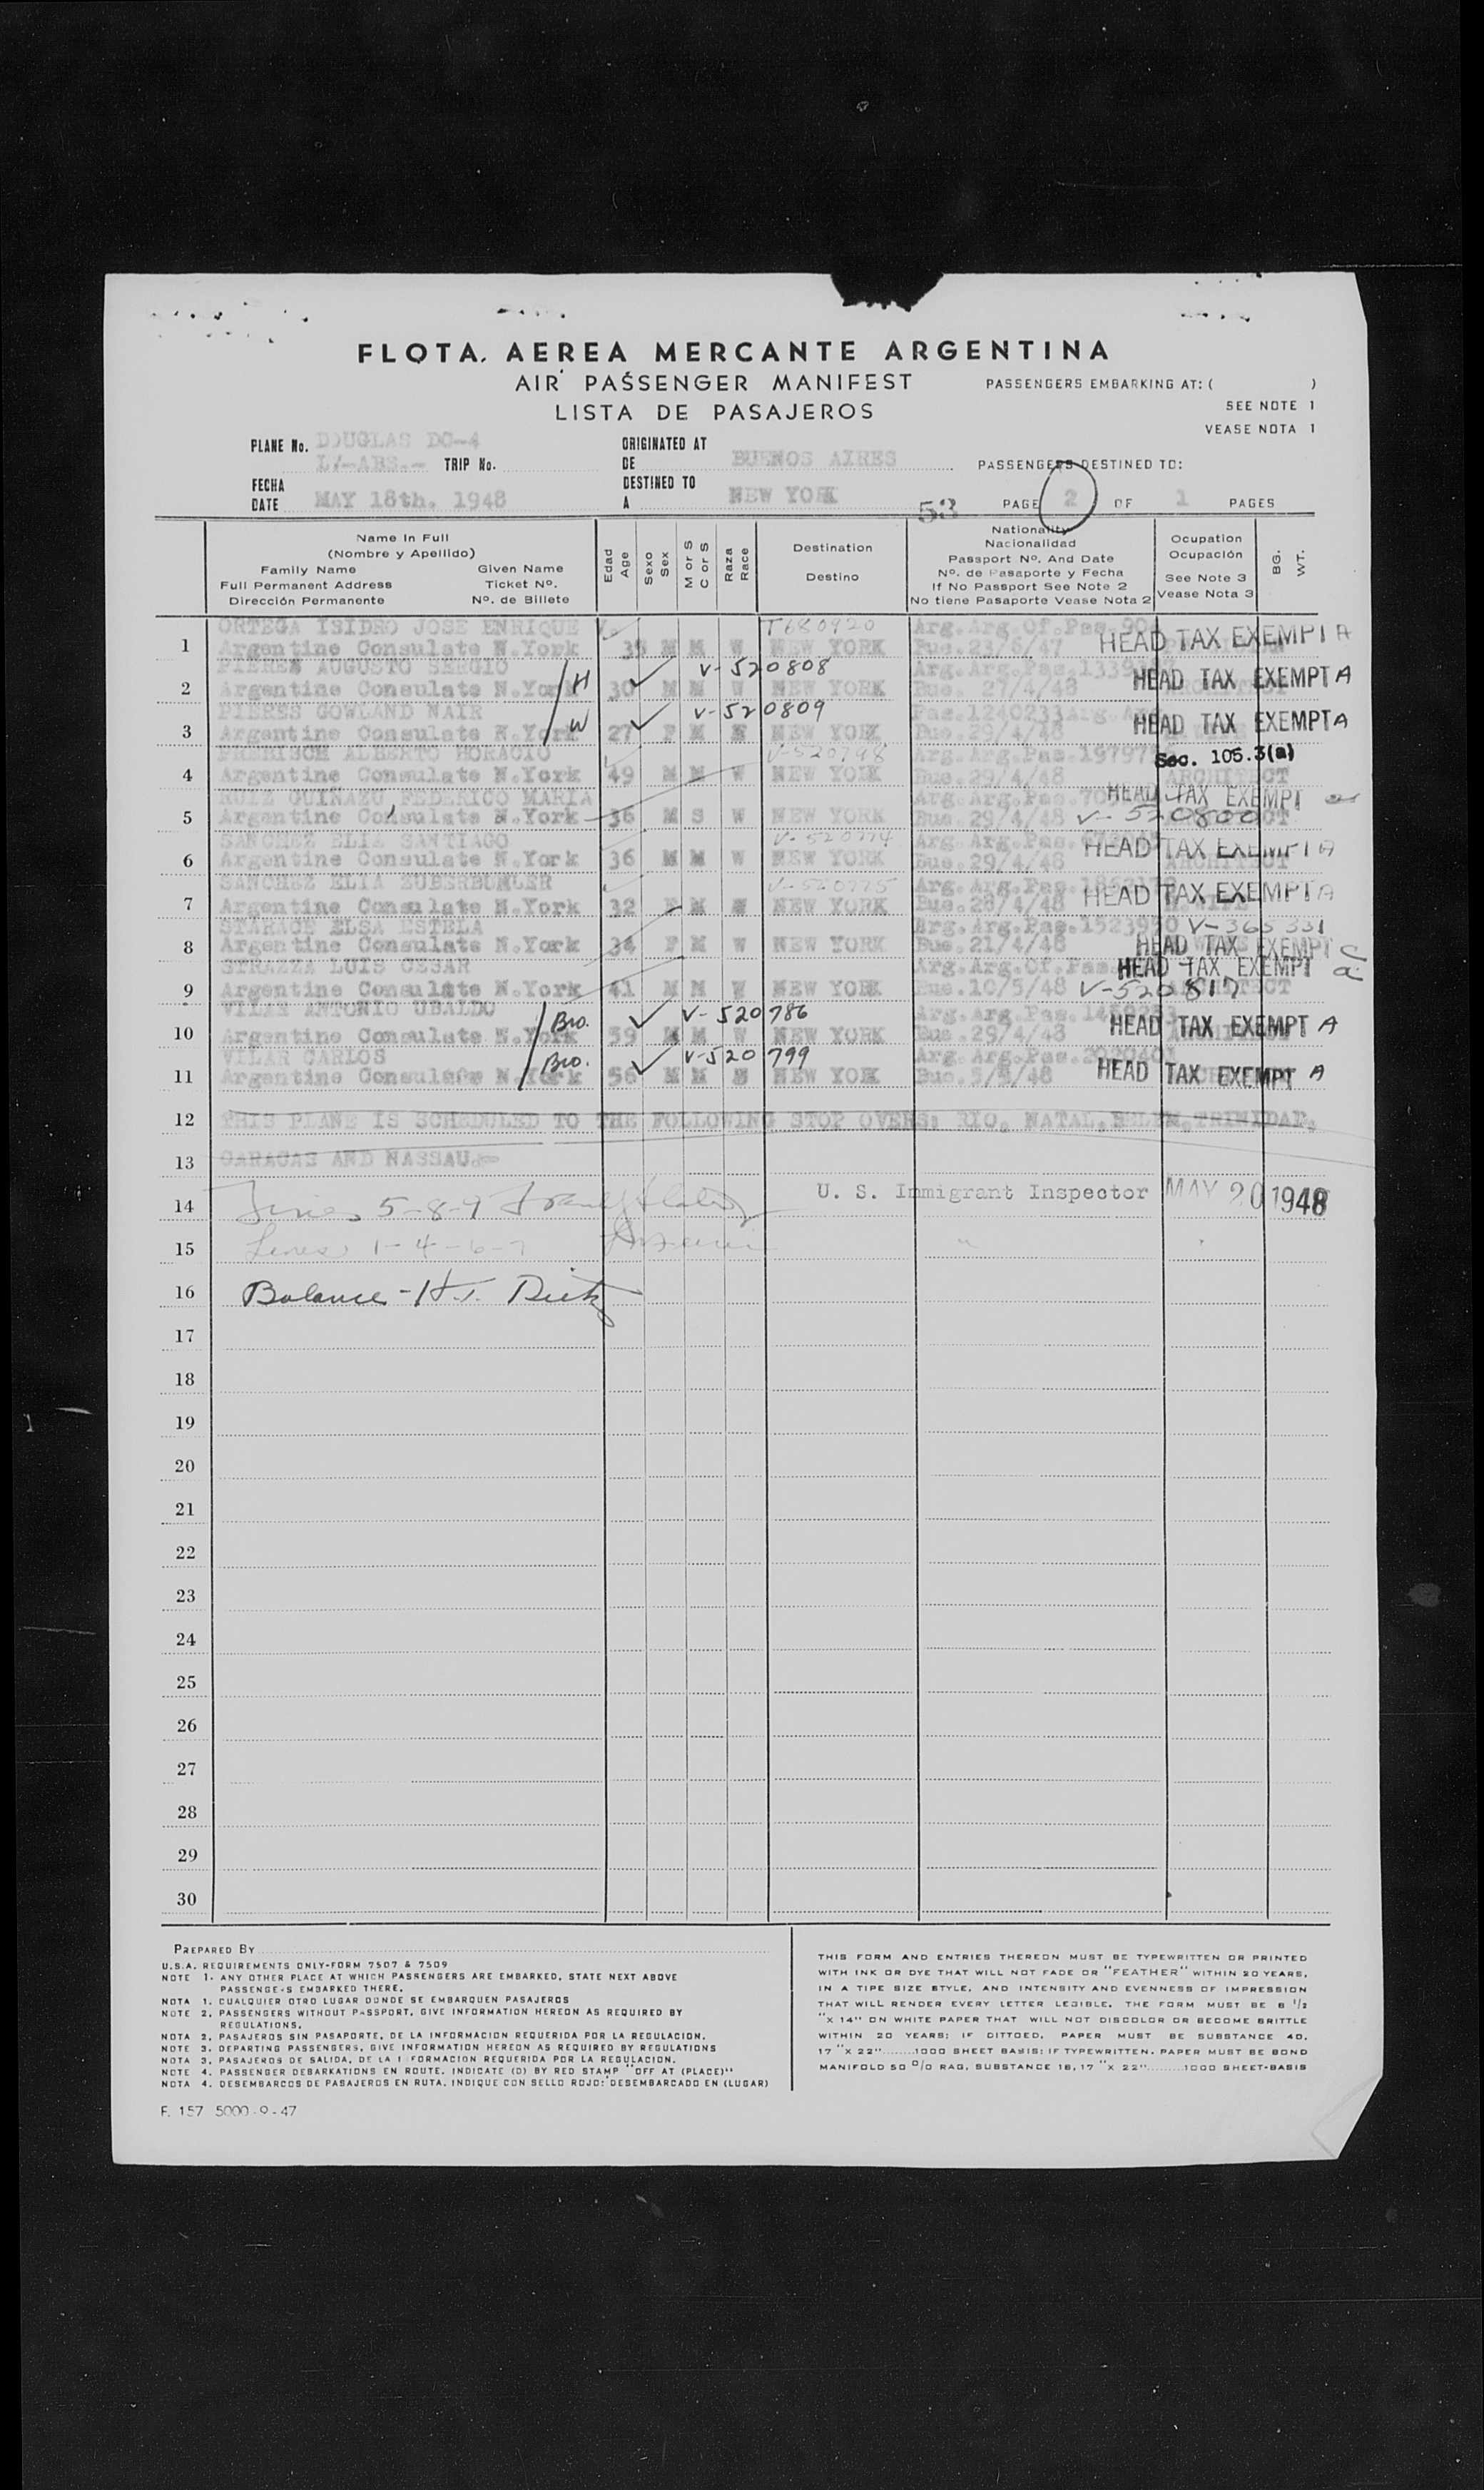 FLOTA AEREA MERCANTE ARGENTINA
AIR PASSENGER MANIFEST
PASSENGERS EMBARKING AT: ( )
LISTA DE PASAJEROS
SEE NOTE 1
VEASE NOTA 1
PLANE No. DOUGLAS DC-4
TRIP No.
ORIGINATED AT
DE BUENOS AIRES
PASSENGERS DESTINED TO:
FECHA
DATE MAY 18th. 1948
DESTINED TO
A NEW YORK
53
PAGE 2 OF 1 PAGES
Name In Full
(Nombre y Apellido)
Family Name Given Name
Full Permanent Address Ticket Nº.
Dirección Permanente Nº. de Billete
Edad Age
Sexo Sex
M or S C or S
Raza Race
Destination
Destino
Nationality
Nacionalidad
Passport Nº. And Date
Nº. de Pasaporte y Fecha
If No Passport See Note 2
No tiene Pasaporte Vease Nota 2
Ocupation
Ocupación
See Note 3
Vease Nota 3
BG. WT.
ORTEGA ISIDRO JOSE ENRIQUE T680920 Arg.Arg.Of.Pas.
1 Argentine Consulate N.York M M W NEW YORK Bue.23/6/47 HEAD TAX EXEMPT A
PIERES AUGUSTO SERGIO V-520808 Arg.Arg.Pas.
2 Argentine Consulate N.York H 30 M M W NEW YORK Bue. 27/4/48 HEAD TAX EXEMPT A
PIERES GOWLAND NAIR V-520809 Pas.1240233 Arg.Arg.
3 Argentine Consulate N.York W 27 F M NEW YORK Bue.29/4/48 HEAD TAX EXEMPT A
PREBISCH ALBERTO HORACIO V-520748 Arg.Arg.Pas. Sec. 105.3(a)
4 Argentine Consulate N.York 49 M M W NEW YORK Bue.29/4/48 ARCHITECT
RUIZ GUIÑAZU FEDERICO MARIA Arg.Arg.Pas. HEAD TAX EXEMPT
5 Argentine Consulate N.York 36 M S W NEW YORK Bue.29/4/48 V-520800
SANCHEZ ELIA SANTIAGO V-520774 Arg.Arg.Pas.
6 Argentine Consulate N.York 36 M M W NEW YORK Bue.29/4/48 HEAD TAX EXEMPT A ARCHITECT
SANCHEZ ELIA ZUBERBUHLER V-520775 Arg.Arg.Pas.
7 Argentine Consulate N.York 32 F M NEW YORK Bue.28/4/48 HEAD TAX EXEMPT A
STARACE ELSA ESTELA Arg.Arg.Pas.1523950 V-365331
8 Argentine Consulate N.York 34 F M W NEW YORK Bue.21/4/48 HEAD TAX EXEMPT
STRAZZA LUIS CESAR Arg.Arg.Of.Pas. HEAD TAX EXEMPT
9 Argentine Consulate N.York 41 M M W NEW YORK Bue.10/5/48 V-520817
VILAR ANTONIO UBALDO Bro. V-520786 Arg.Arg.Pas.
10 Argentine Consulate N.York M M W NEW YORK Bue.29/4/48 HEAD TAX EXEMPT A
VILAR CARLOS Bro. V-520799 Arg.Arg.Pas.
11 Argentine Consulate N.York 56 M M NEW YORK Bue.5/5/48 HEAD TAX EXEMPT A
12 THIS PLANE IS SCHEDULED TO THE FOLLOWING STOP OVERS: RIO, NATAL, BELEM, TRINIDAD,
13 CARACAS AND NASSAU.-
14 Lines 5-8-9 U. S. Immigrant Inspector MAY 20 1948
15 Lines 1-4-6-7
16 Balance - H.J.
17
18
19
20
21
22
23
24
25
26
27
28
29
30
PREPARED BY
U.S.A. REQUIREMENTS ONLY-FORM 7507 & 7509
NOTE 1. ANY OTHER PLACE AT WHICH PASSENGERS ARE EMBARKED, STATE NEXT ABOVE
PASSENGERS EMBARKED THERE.
NOTA 1. CUALQUIER OTRO LUGAR DONDE SE EMBARQUEN PASAJEROS
NOTE 2. PASSENGERS WITHOUT PASSPORT, GIVE INFORMATION HEREON AS REQUIRED BY
REGULATIONS.
NOTA 2. PASAJEROS SIN PASAPORTE, DE LA INFORMACION REQUERIDA POR LA REGULACION.
NOTE 3. DEPARTING PASSENGERS, GIVE INFORMATION HEREON AS REQUIRED BY REGULATIONS
NOTA 3. PASAJEROS DE SALIDA, DE LA INFORMACION REQUERIDA POR LA REGULACION.
NOTE 4. PASSENGER DEBARKATIONS EN ROUTE, INDICATE (D) BY RED STAMP "OFF AT (PLACE)"
NOTA 4. DESEMBARCOS DE PASAJEROS EN RUTA, INDIQUE CON SELLO ROJO: "DESEMBARCADO EN (LUGAR)
THIS FORM AND ENTRIES THEREON MUST BE TYPEWRITTEN OR PRINTED
WITH INK OR DYE THAT WILL NOT FADE OR "FEATHER" WITHIN 20 YEARS,
IN A TIPE SIZE STYLE, AND INTENSITY AND EVENNESS OF IMPRESSION
THAT WILL RENDER EVERY LETTER LEGIBLE. THE FORM MUST BE 8 1/2
"X 14" ON WHITE PAPER THAT WILL NOT DISCOLOR OR BECOME BRITTLE
WITHIN 20 YEARS; IF DITTOED, PAPER MUST BE SUBSTANCE 40,
17 "X 22".......1000 SHEET BASIS; IF TYPEWRITTEN. PAPER MUST BE BOND
MANIFOLD 50 0/0 RAG, SUBSTANCE 18, 17 "X 22"........1000 SHEET-BASIS
F. 157 5000-9-47